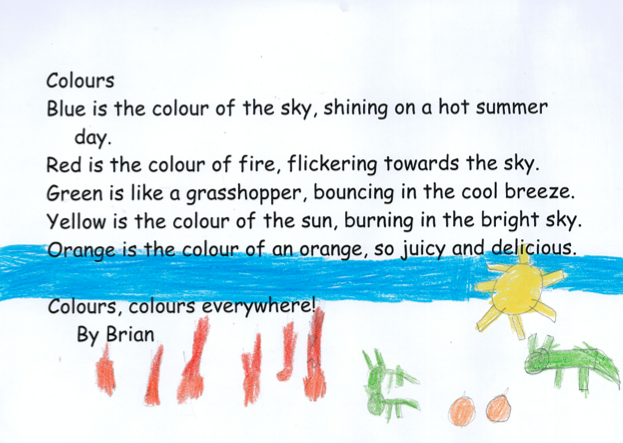 Colours
Blue is the colour of the sky, shining on a hot summer
day.
Red is the colour of fire, flickering towards the sky.
Green is like a grasshopper, bouncing in the cool breeze.
Yellow is the colour of the sun, burning in the bright sky.
Orange is the colour of an orange, so juicy and delicious.
Colours, colours everywhere!
By Brian